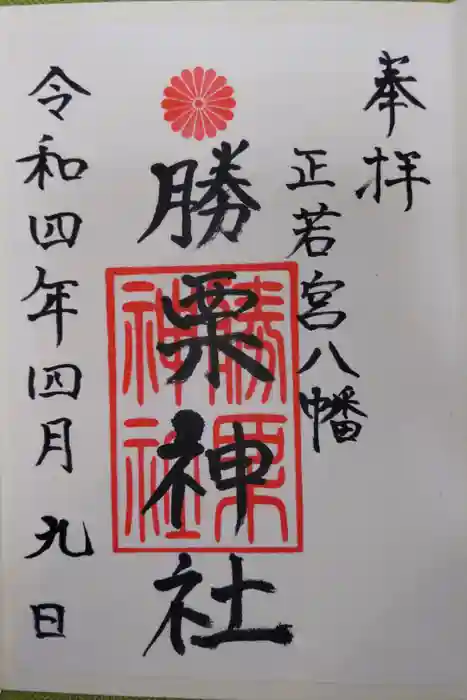 奉拝
正若宮八幡
勝栗神社
勝栗神社
令和四年四月九日